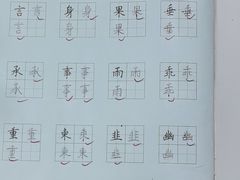 言 言 身 身 果 果 垂 垂
言 身 果 垂
承 承 事 事 雨 雨 乖 乖
承 事 雨 乖
重 重 東 東 韭 韭 幽 幽
重 東 韭 幽